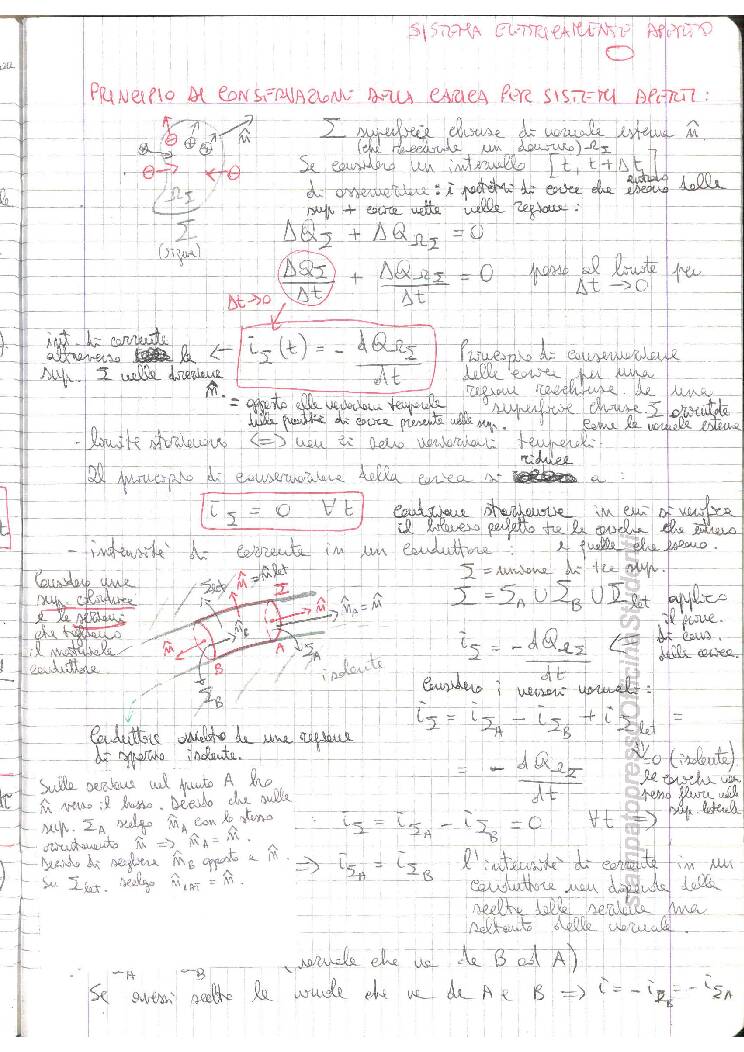 SISTEMA ELETTRICAMENTE APERTO
PRINCIPIO DI CONSERVAZIONE DELLA CARICA PER SISTEMI APERTI:
Σ superficie chiusa di normale esterna n̂
(che racchiude un dominio) Ω_Σ
Se considero un intervallo [t, t+Δt]
di osservazione: i pacchetti di carica che entrano escono dalla
sup + carica netta nella regione:
n̂
Ω_Σ
Σ
ΔQ_Σ + ΔQ_ΩΣ = 0
ΔQ_Σ/Δt + ΔQ_ΩΣ/Δt = 0 passo al limite per
Δt → 0
Δt→0
int. di corrente
attraverso la
sup. Σ nella direzione
n̂.
i_Σ(t) = - dQ_ΩΣ/dt
Principio di conservazione
della carica per una
regione racchiusa da una
superficie chiusa Σ orientata
come la normale esterna
= opposto alla variazione temporale
della quantità di carica presente nella sup.
- limite stazionario <=> non ci sono variazioni temporali.
Il principio di conservazione della carica si riduce a:
i_Σ = 0 ∀t
condizione stazionaria in cui si verifica
il bilancio perfetto tra le cariche che entrano
e quelle che escono.
- intensità di corrente in un conduttore:
Σ = unione di tre sup.
Σ = Σ_A ∪ Σ_B ∪ Σ_lat applico
il princ.
di cons.
della carica.
i_Σ = - dQ_ΩΣ/dt
Considero una
sup. cilindrica
e le sezioni
che tagliano
il materiale
conduttore
Σ_lat n̂ = n̂_lat Σ
n̂ n̂_A = n̂
n̂ n̂_B A Σ_A
B
Σ_B
isolante
Considero i versori normali:
i_Σ = i_ΣA - i_ΣB + i_Σlat =
=0 (isolante)
= - dQ_ΩΣ/dt
le cariche non
sup. laterale
Conduttore ambito da una regione
di spazio isolante.
Sulla sezione nel punto A ho
n̂ verso il basso. Decido che sulla
sup. Σ_A scelgo n̂_A con lo stesso
orientamento n̂ => n̂_A = n̂.
Decido di scegliere n̂_B opposto a n̂.
Su Σ_lat. scelgo n̂_LAT = n̂.
: i_Σ = i_ΣA - i_ΣB = 0 ∀t =>
=> i_ΣA = i_ΣB
l'intensità di corrente in un
conduttore non dipende dalla
scelta della sezione ma
soltanto dalla normale.
(normale che va da B ad A)
Se avessi scelto la normale che va da A a B => i = -i_ΣB = -i_ΣA
stampatopressoOfficinaStudenti